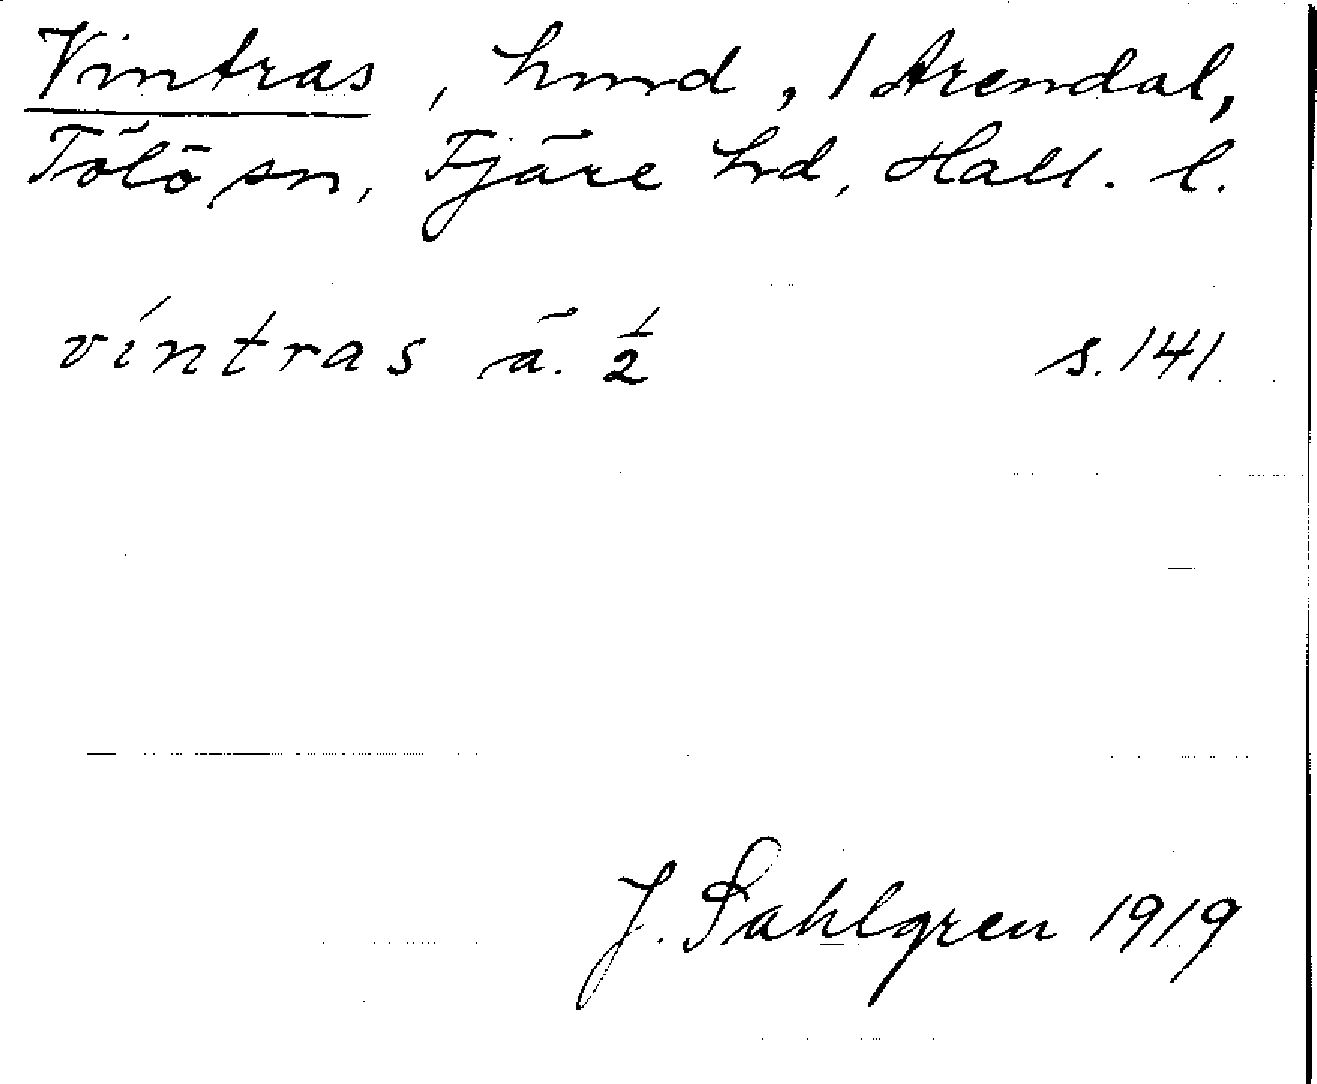 Vintras, hmd, / Arendal,
Tölö sn, Fjäre hd, Hall. l.
víntras ä. 1/2 s. 141
J. Sahlgren 1919